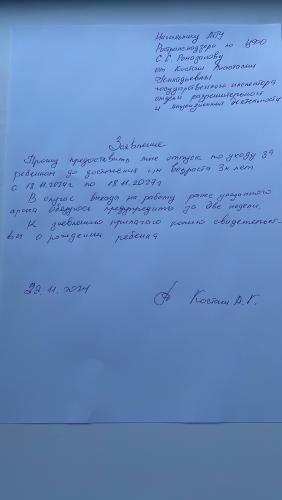 Начальнику МТУ
Ространснадзора по ЦФО
С.С. Рамазанову
от Косташ Анастасии
Геннадьевны
государственного инспектора
отдела разрешительной
и лицензионной деятельности
Заявление
Прошу предоставить мне отпуск по уходу за
ребенком до достижения им возраста 3х лет
с 18.11.2024г по 18.11.2027г
В случае выхода на работу ранее указанного
срока обязуюсь предупредить за две недели.
К заявлению прилагаю копию свидетельст-
ва о рождении ребенка
29.11.2024 Косташ А.Г.